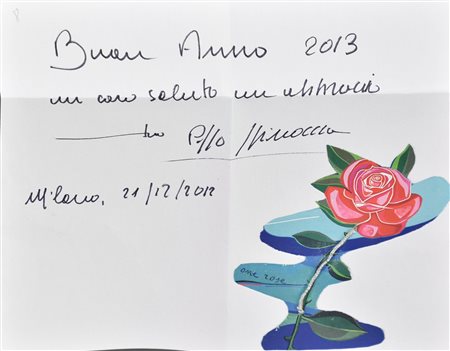 Buon Anno 2013
un caro saluto un abbraccio
tuo Pippo Spinoccia
Milano, 21/12/2012
one rose